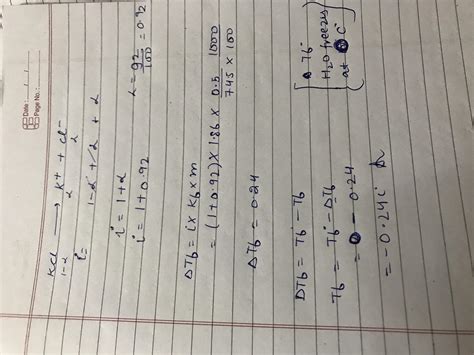 Date: / /
Page No.:
KCl → K+ + Cl-
1-α α α
i = 1-α + α + α
i = 1+α α = 92/100 = 0.92
i = 1+0.92
ΔTb = i x Kb x m
= (1+0.92) x 1.86 x 0.5/74.5 x 1000/100
ΔTb = 0.24
ΔTb = Tb° - Tb
Tb = Tb° - ΔTb
= 0 - 0.24
= -0.24
[Tb°
H2O freezes
at 0 °C]